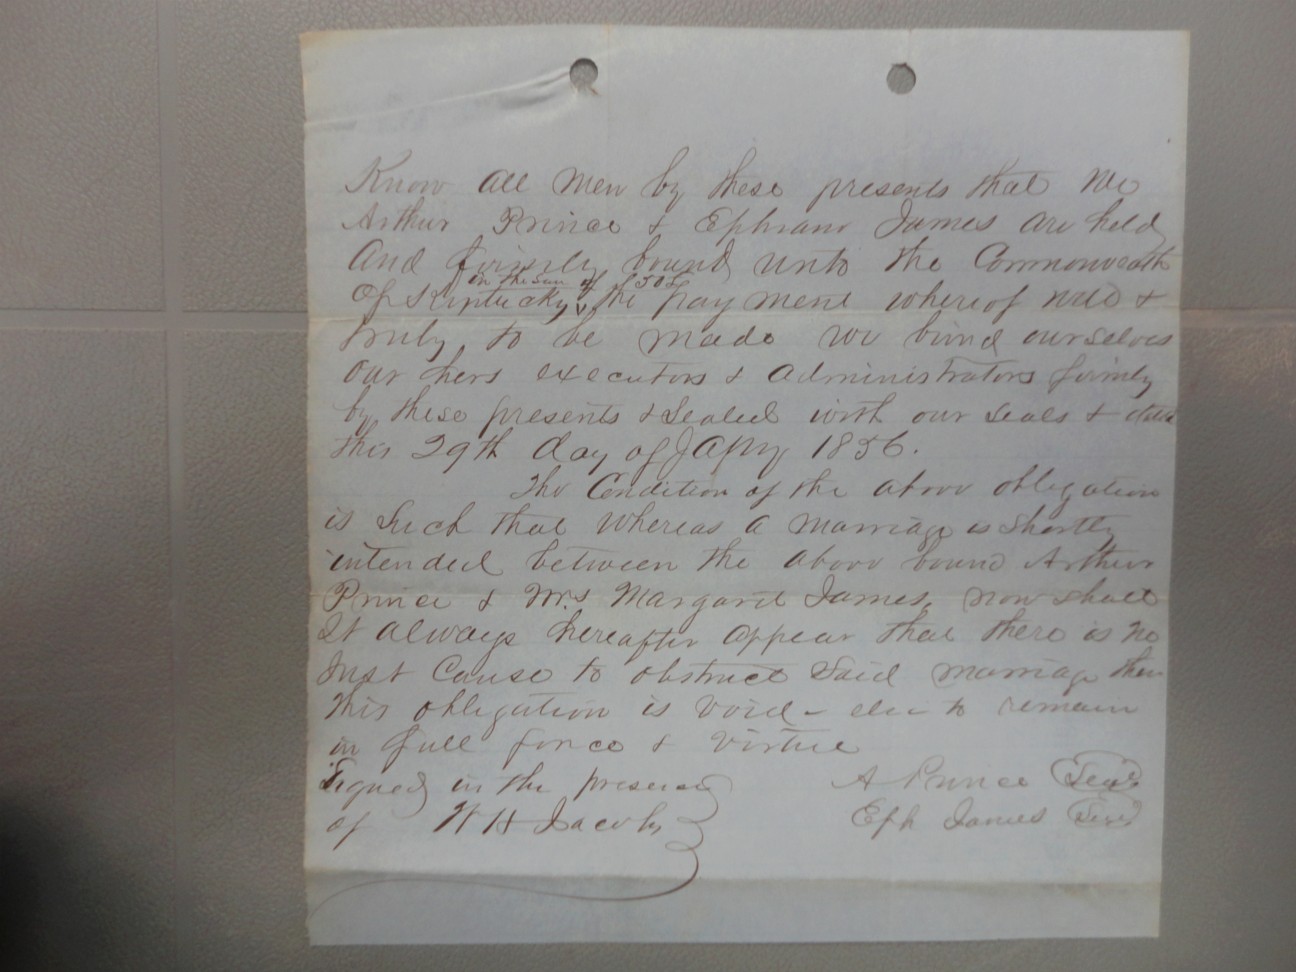 Know all men by these presents that we
Arthur Prince & Ephraim James are held
and firmly bound unto the Commonwealth
in the sum of £50
Of Kentucky, the payment whereof well &
truly to be made we bind ourselves
our heirs executors & administrators firmly
by these presents & Sealed with our seals &
this 29th day of Jany 1856.
The Condition of the above obligation
is Such that whereas a marriage is shortly
intended between the above bound Arthur
Prince & Mrs Margaret James, now shall
It always hereafter appear that there is no
Just Cause to obstruct said marriage then
this obligation is void - else to remain
in full force & virtue
Signed in the presence A Prince Seal
of W H Jacoby Eph James Seal